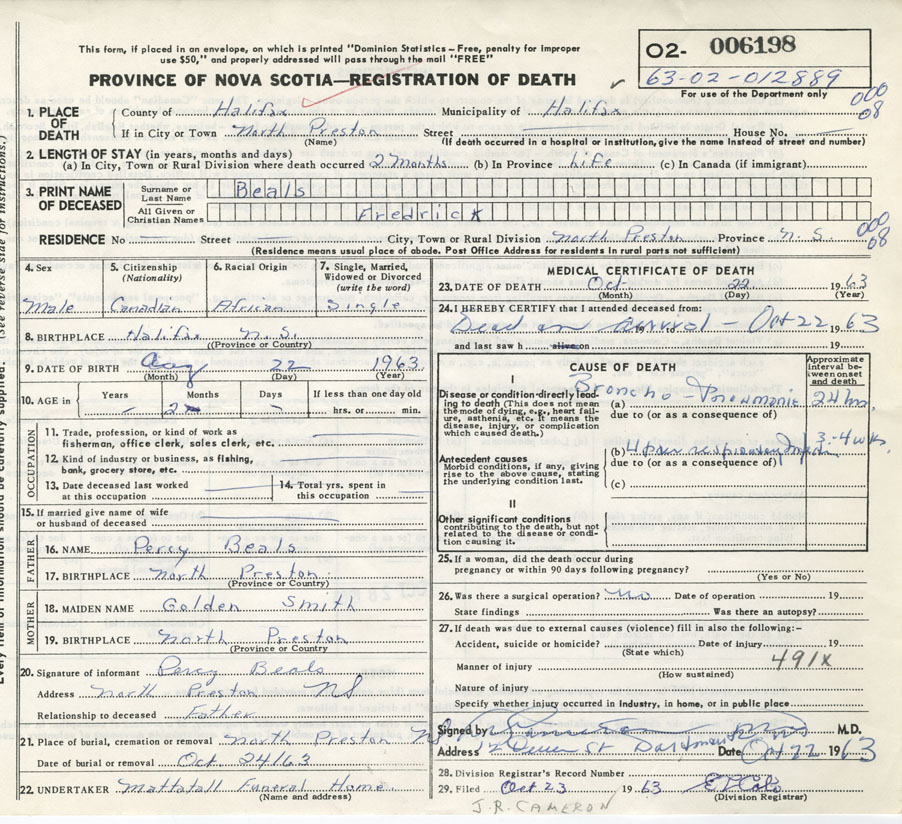 This form, if placed in an envelope, on which is printed "Dominion Statistics – Free, penalty for improper
use $50," and properly addressed will pass through the mail "FREE"
PROVINCE OF NOVA SCOTIA—REGISTRATION OF DEATH
O2- 006198
63-02-012889
For use of the Department only
000
08
1. PLACE OF DEATH
County of Halifax Municipality of Halifax
If in City or Town North Preston Street House No.
(Name) (If death occurred in a hospital or institution, give the name instead of street and number)
2. LENGTH OF STAY (in years, months and days)
(a) In City, Town or Rural Division where death occurred 2 Months (b) In Province Life (c) In Canada (if immigrant)
3. PRINT NAME OF DECEASED
Surname or Last Name Beals
All Given or Christian Names Fredrick
000
08
RESIDENCE No Street City, Town or Rural Division North Preston Province N.S.
(Residence means usual place of abode. Post Office Address for residents in rural parts not sufficient)
4. Sex Male
5. Citizenship (Nationality) Canadian
6. Racial Origin African
7. Single, Married, Widowed or Divorced (write the word) Single
8. BIRTHPLACE Halifax N.S.
(Province or Country)
9. DATE OF BIRTH Aug 22 1963
(Month) (Day) (Year)
10. AGE in Years Months 2 Days If less than one day old hrs. or min.
OCCUPATION
11. Trade, profession, or kind of work as
fisherman, office clerk, sales clerk, etc.
12. Kind of industry or business, as fishing,
bank, grocery store, etc.
13. Date deceased last worked
at this occupation
14. Total yrs. spent in
this occupation
15. If married give name of wife
or husband of deceased
FATHER
16. NAME Percy Beals
17. BIRTHPLACE North Preston
(Province or Country)
MOTHER
18. MAIDEN NAME Golden Smith
19. BIRTHPLACE North Preston
(Province or Country)
20. Signature of informant Percy Beals
Address North Preston NS
Relationship to deceased Father
21. Place of burial, cremation or removal North Preston
Date of burial or removal Oct 24/63
22. UNDERTAKER Mattatall Funeral Home
(Name and address)
MEDICAL CERTIFICATE OF DEATH
23. DATE OF DEATH Oct 22 1963
(Month) (Day) (Year)
24. I HEREBY CERTIFY that I attended deceased from:
Dead on arrival – Oct 22 1963
and last saw h alive on 19
CAUSE OF DEATH
Approximate interval between onset and death
I
Disease or condition directly leading to death (This does not mean
the mode of dying, e.g., heart failure, asthenia, etc. It means the
disease, injury, or complication which caused death.)
(a) Broncho – Pneumonia 24 hrs.
due to (or as a consequence of)
Antecedent causes
Morbid conditions, if any, giving
rise to the above cause, stating
the underlying condition last.
(b) Upper respiratory 3-4 wks.
due to (or as a consequence of)
(c)
II
Other significant conditions
contributing to the death, but not
related to the disease or condition causing it.
25. If a woman, did the death occur during
pregnancy or within 90 days following pregnancy?
(Yes or No)
26. Was there a surgical operation? No Date of operation 19
State findings Was there an autopsy?
27. If death was due to external causes (violence) fill in also the following:–
Accident, suicide or homicide? Date of injury 19
(State which)
491x
Manner of injury
(How sustained)
Nature of injury
Specify whether injury occurred in industry, in home, or in public place
Signed by M.D.
Address St Dartmouth Date Oct 22 1963
28. Division Registrar's Record Number
29. Filed Oct 23 1963
(Division Registrar)
J.R. CAMERON
(See reverse side for instructions.)